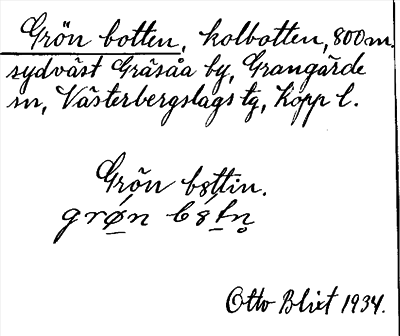 Grön botten, kolbotten, 800 m.
sydväst Gräsåa by, Grangärde
sn, Västerbergslags tg, Kopp l.
Grön båttin.
Otto Blixt 1934.